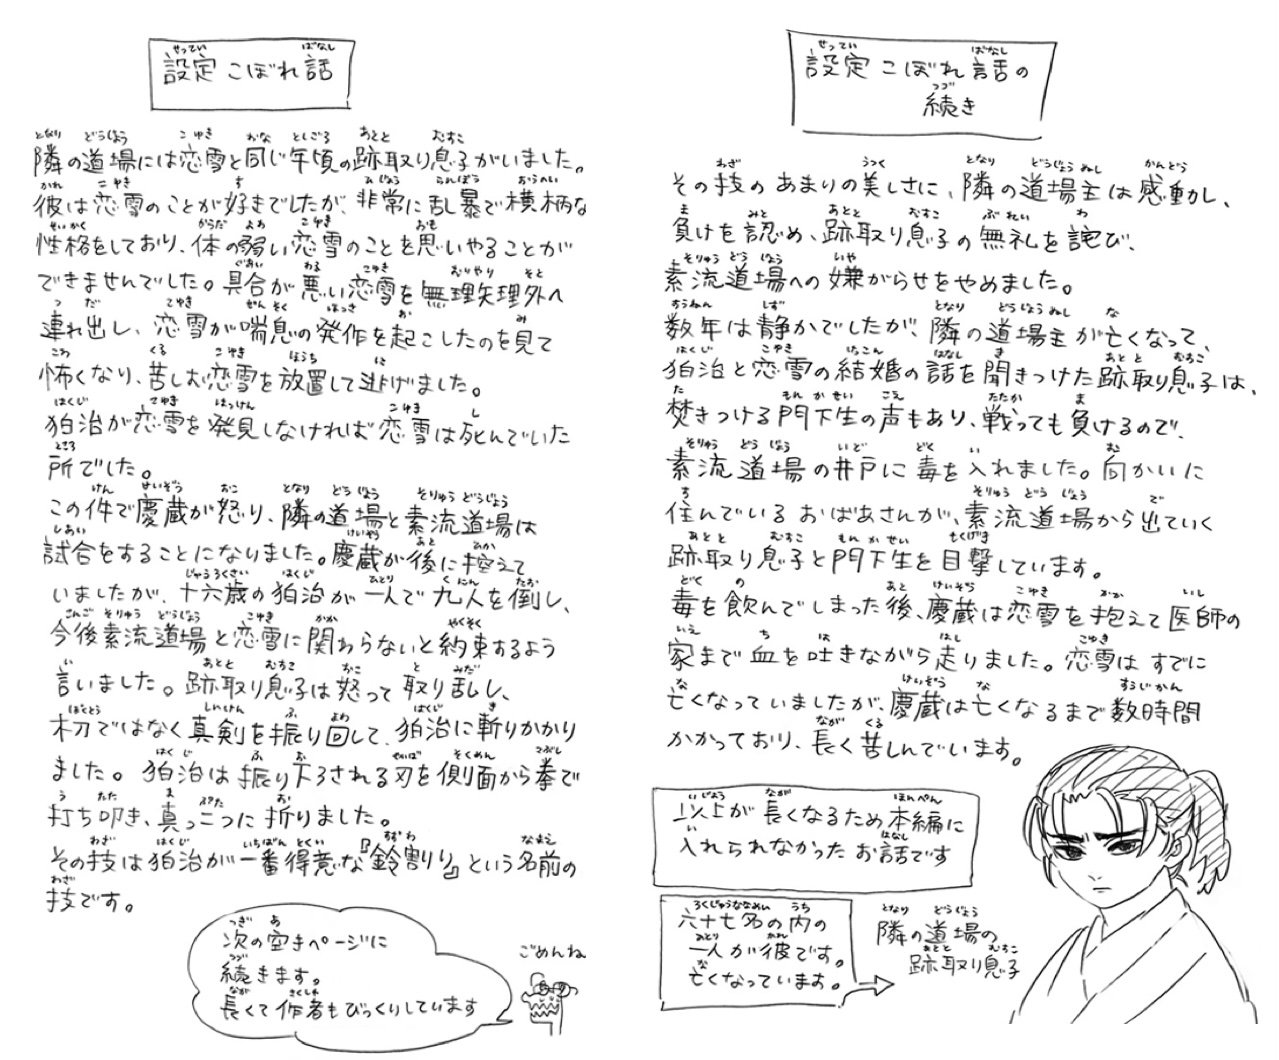 設定こぼれ話
隣の道場には恋雪と同じ年頃の跡取り息子がいました。
彼は恋雪のことが好きでしたが、非常に乱暴で横柄な
性格をしており、体の弱い恋雪のことを思いやることが
できませんでした。具合が悪い恋雪を無理矢理外へ
連れ出し、恋雪が喘息の発作を起こしたのを見て
怖くなり、苦しむ恋雪を放置して逃げました。
狛治が恋雪を発見しなければ恋雪は死んでいた
所でした。
この件で慶蔵が怒り、隣の道場と素流道場は
試合をすることになりました。慶蔵が後に控えて
いましたが、十六歳の狛治が一人で九人を倒し、
今後素流道場と恋雪に関わらないと約束するよう
言いました。跡取り息子は怒って取り乱し、
木刀ではなく真剣を振り回して、狛治に斬りかかり
ました。狛治は振り下ろされる刃を側面から拳で
打ち叩き、真っ二つに折りました。
その技は狛治が一番得意な『鈴割り』という名前の
技です。
次の空きページに
続きます。
長くて作者もびっくりしています
ごめんね
設定こぼれ話の
続き
その技のあまりの美しさに、隣の道場主は感動し、
負けを認め、跡取り息子の無礼を詫び、
素流道場への嫌がらせをやめました。
数年は静かでしたが、隣の道場主が亡くなって、
狛治と恋雪の結婚の話を聞きつけた跡取り息子は、
焚きつける門下生の声もあり、戦っても負けるので、
素流道場の井戸に毒を入れました。向かいに
住んでいるおばあさんが、素流道場から出ていく
跡取り息子と門下生を目撃しています。
毒を飲んでしまった後、慶蔵は恋雪を抱えて医師の
家まで血を吐きながら走りました。恋雪はすでに
亡くなっていましたが、慶蔵は亡くなるまで数時間
かかっており、長く苦しんでいます。
以上が長くなるため本編に
入れられなかったお話です
六十七名の内の
一人が彼です。
亡くなっています。
隣の道場の
跡取り息子